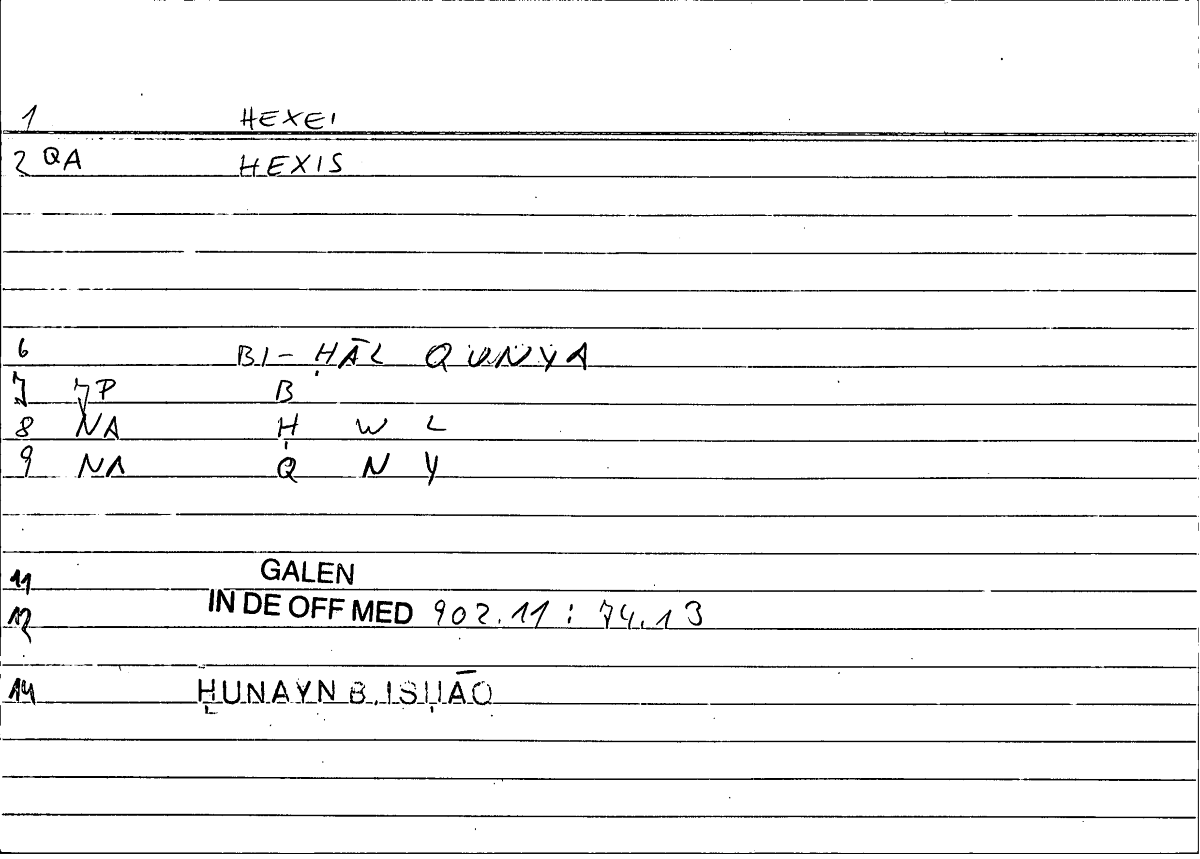 1 HEXEI
2 QA HEXIS
6 BI-ḤĀL QUNYA
7 JP B
8 NA Ḥ W L
9 NA Q N Y
11 GALEN
12 IN DE OFF MED 902.11 : 74.13
14 ḤUNAYN B. ISḤĀQ